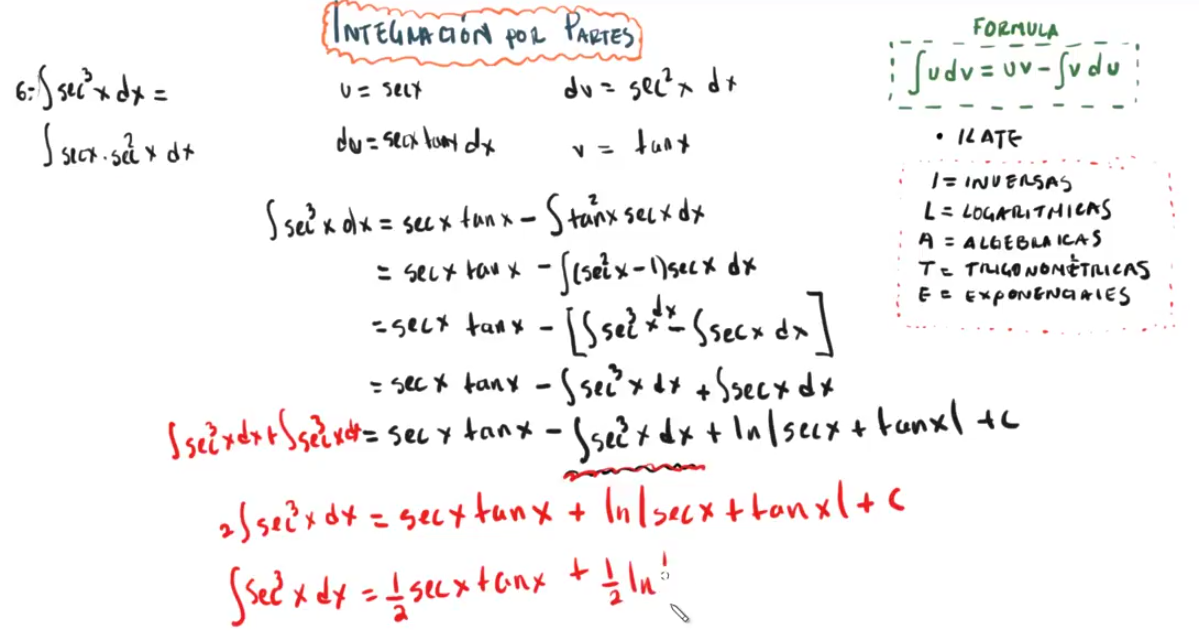 INTEGRACIÓN POR PARTES
FORMULA
∫u dv = uv - ∫v du
• ILATE
I = INVERSAS
L = LOGARITMICAS
A = ALGEBRAICAS
T = TRIGONOMÉTRICAS
E = EXPONENCIALES
6.- ∫sec³x dx =
∫secx · sec²x dx
u = secx
dv = sec²x dx
du = secx tanx dx
v = tanx
∫sec³x dx = secx tanx - ∫tan²x secx dx
= secx tanx - ∫(sec²x - 1)secx dx
= secx tanx - [∫sec³x dx - ∫secx dx]
= secx tanx - ∫sec³x dx + ∫secx dx
∫sec³x dx + ∫sec³x dx = secx tanx - ∫sec³x dx + ln|secx + tanx| + c
2∫sec³x dx = secx tanx + ln|secx + tanx| + c
∫sec³x dx = 1/2 secx tanx + 1/2 ln|